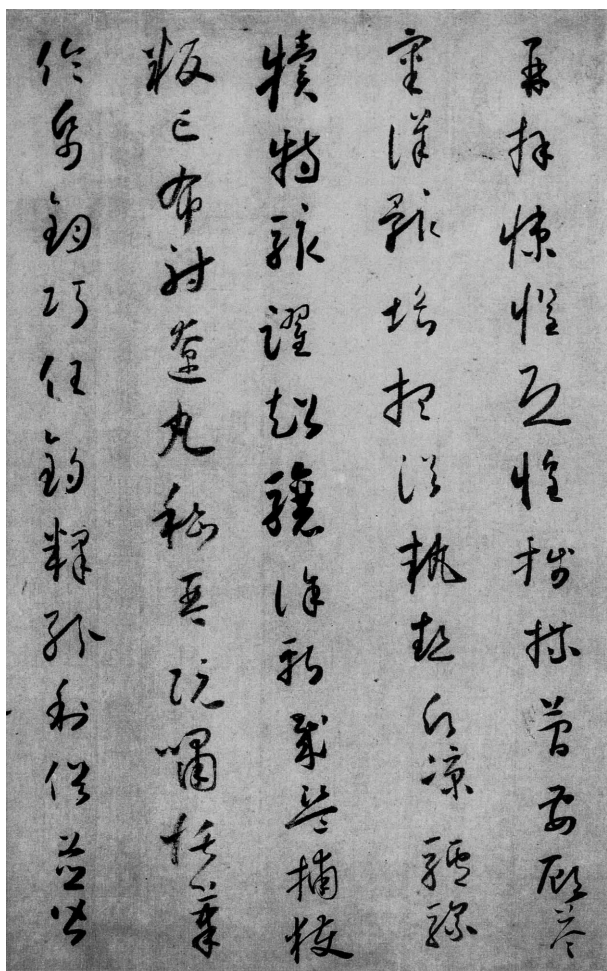 再拜悚懼恐惶牋牒簡要顧答
審詳骸垢想浴執熱願涼驢騾
犢特駭躍超驤誅斬賊盜捕獲
叛亡布射遼丸嵇琴阮嘯恬筆
倫帋鈞巧任釣釋紛利俗並皆